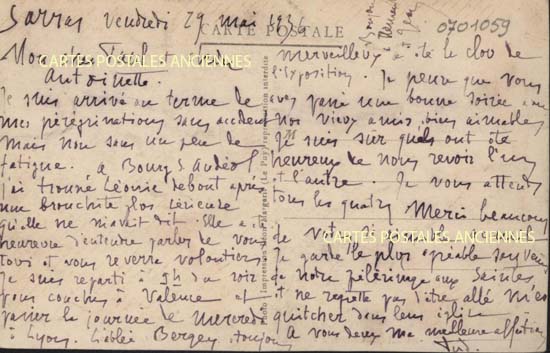 Sarras vendredi 29 mai 1936
CARTE POSTALE
0701059
CARTES POSTALES ANCIENNES
Antoinette.
Je suis arrivé au terme de
mes pérégrinations sans accident
Mais non sans un peu de
fatigue. à Bourg St Andéol
j'ai trouvé Léonie debout après
une bronchite plus sérieuse
qu'elle ne m'avait dit. Elle a
heureuse d'entendre parler de vous
tous et vous reverra volontiers
Je suis reparti à 9h du soir
pour coucher à Valence et
passer la journée de mercredi
à Lyon. L'abbé Bergey toujours
merveilleux a été le clou de
l'Exposition. Je pense que vous
avez passé une bonne soirée avec
nos vieux amis, bien aimables
Je suis sûr qu'ils ont été
heureux de nous revoir l'un
et l'autre. Je vous attends
tous les quatre. Merci beaucoup
de votre
CARTES POSTALES ANCIENNES
Je garde le plus agréable souvenir
de notre pèlerinage aux Saintes
et ne regrette pas d'être allé m'es
quicher dans leur église
A vous deux ma meilleure affection